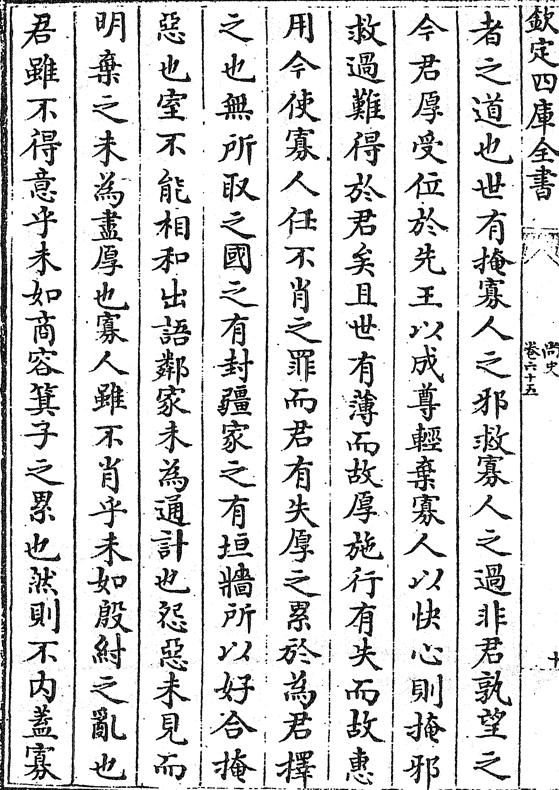 欽定四庫全書
尚史
卷六十五
十
者之道也世有掩寡人之邪救寡人之過非君孰望之
今君厚受位於先王以成尊輕棄寡人以快心則掩邪
救過難得於君矣且世有薄而故厚施行有失而故惠
用今使寡人任不肖之罪而君有失厚之累於為君擇
之也無所取之國之有封疆家之有垣牆所以好合掩
惡也室不能相和出語鄰家未為通計也怨惡未見而
明棄之未為盡厚也寡人雖不肖乎未如殷紂之亂也
君雖不得意乎未如商容箕子之累也然則不內蓋寡